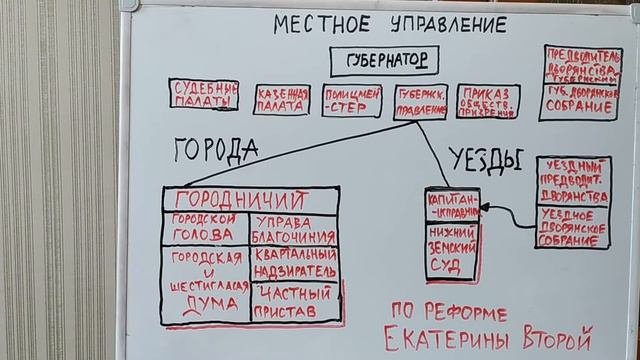 МЕСТНОЕ УПРАВЛЕНИЕ
ГУБЕРНАТОР
СУДЕБНЫЕ
ПАЛАТЫ
КАЗЕННАЯ
ПАЛАТА
ПОЛИЦМЕЙ-
-СТЕР
ГУБЕРНСК.
ПРАВЛЕНИЕ
ПРИКАЗ
ОБЩЕСТВ.
ПРИЗРЕНИЯ
ПРЕДВОДИТЕЛЬ
ДВОРЯНСТВА
ГУБЕРНСКИЙ
ГУБ. ДВОРЯНСКОЕ
СОБРАНИЕ
ГОРОДА
ГОРОДНИЧИЙ
ГОРОДСКОЙ
ГОЛОВА
УПРАВА
БЛАГОЧИНИЯ
ГОРОДСКАЯ
И
ШЕСТИГЛАСАЯ
ДУМА
КВАРТАЛЬНЫЙ
НАДЗИРАТЕЛЬ
ЧАСТНЫЙ
ПРИСТАВ
УЕЗДЫ
КАПИТАН-
-ИСПРАВНИК
НИЖНИЙ
ЗЕМСКИЙ
СУД
УЕЗДНЫЙ
ПРЕДВОДИТ.
ДВОРЯНСТВА
УЕЗДНОЕ
ДВОРЯНСКОЕ
СОБРАНИЕ
ПО РЕФОРМЕ
ЕКАТЕРИНЫ ВТОРОЙ